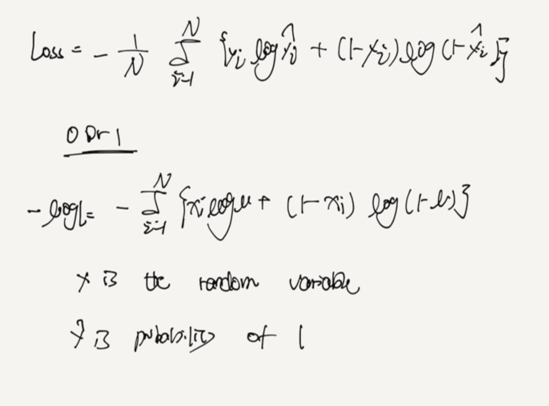 Loss = - 1/N Σ_{i=1}^{N} {y_i log ŷ_i + (1-y_i) log(1-ŷ_i)}
0 or 1
-log L = - Σ_{i=1}^{N} {x_i log μ + (1-x_i) log(1-μ)}
y is the random variable
ŷ is probability of 1